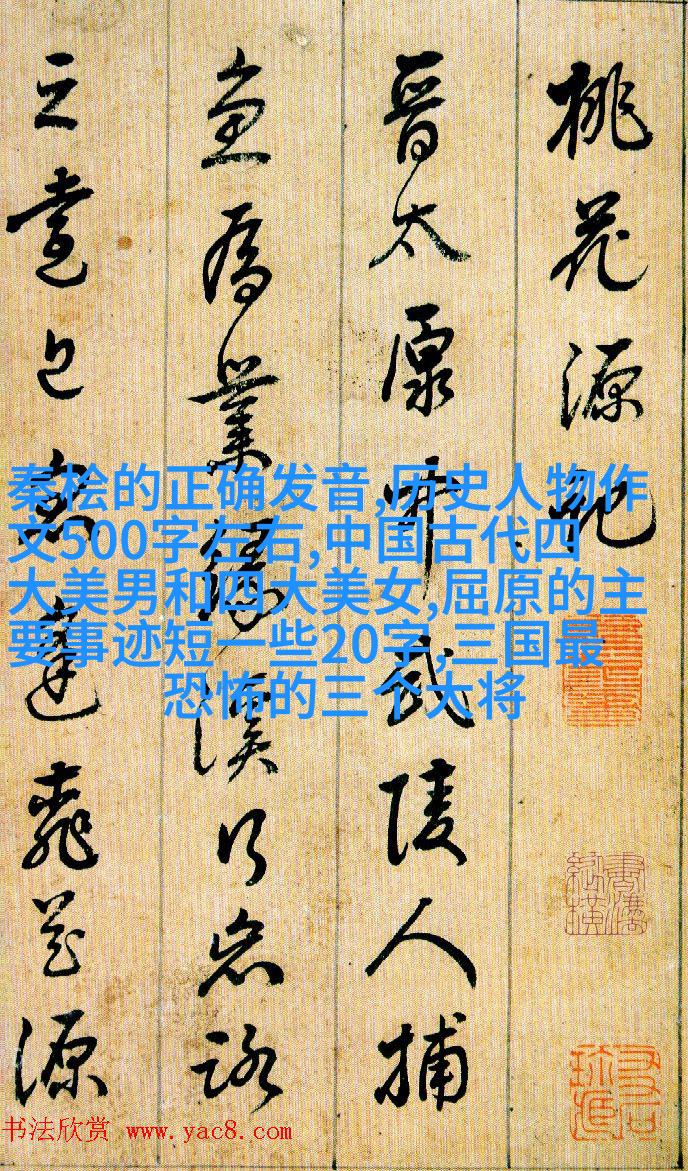 桃花源記
晉太原中武陵人捕
魚為業緣溪行忘路
之遠近忽逢桃花源
秦桧的正确发音,历史人物作
文500字左右,中国古代四
大美男和四大美女,屈原的主
要事迹短一些20字,三国最
恐怖的三个大将
书法欣赏 www.yac8.com